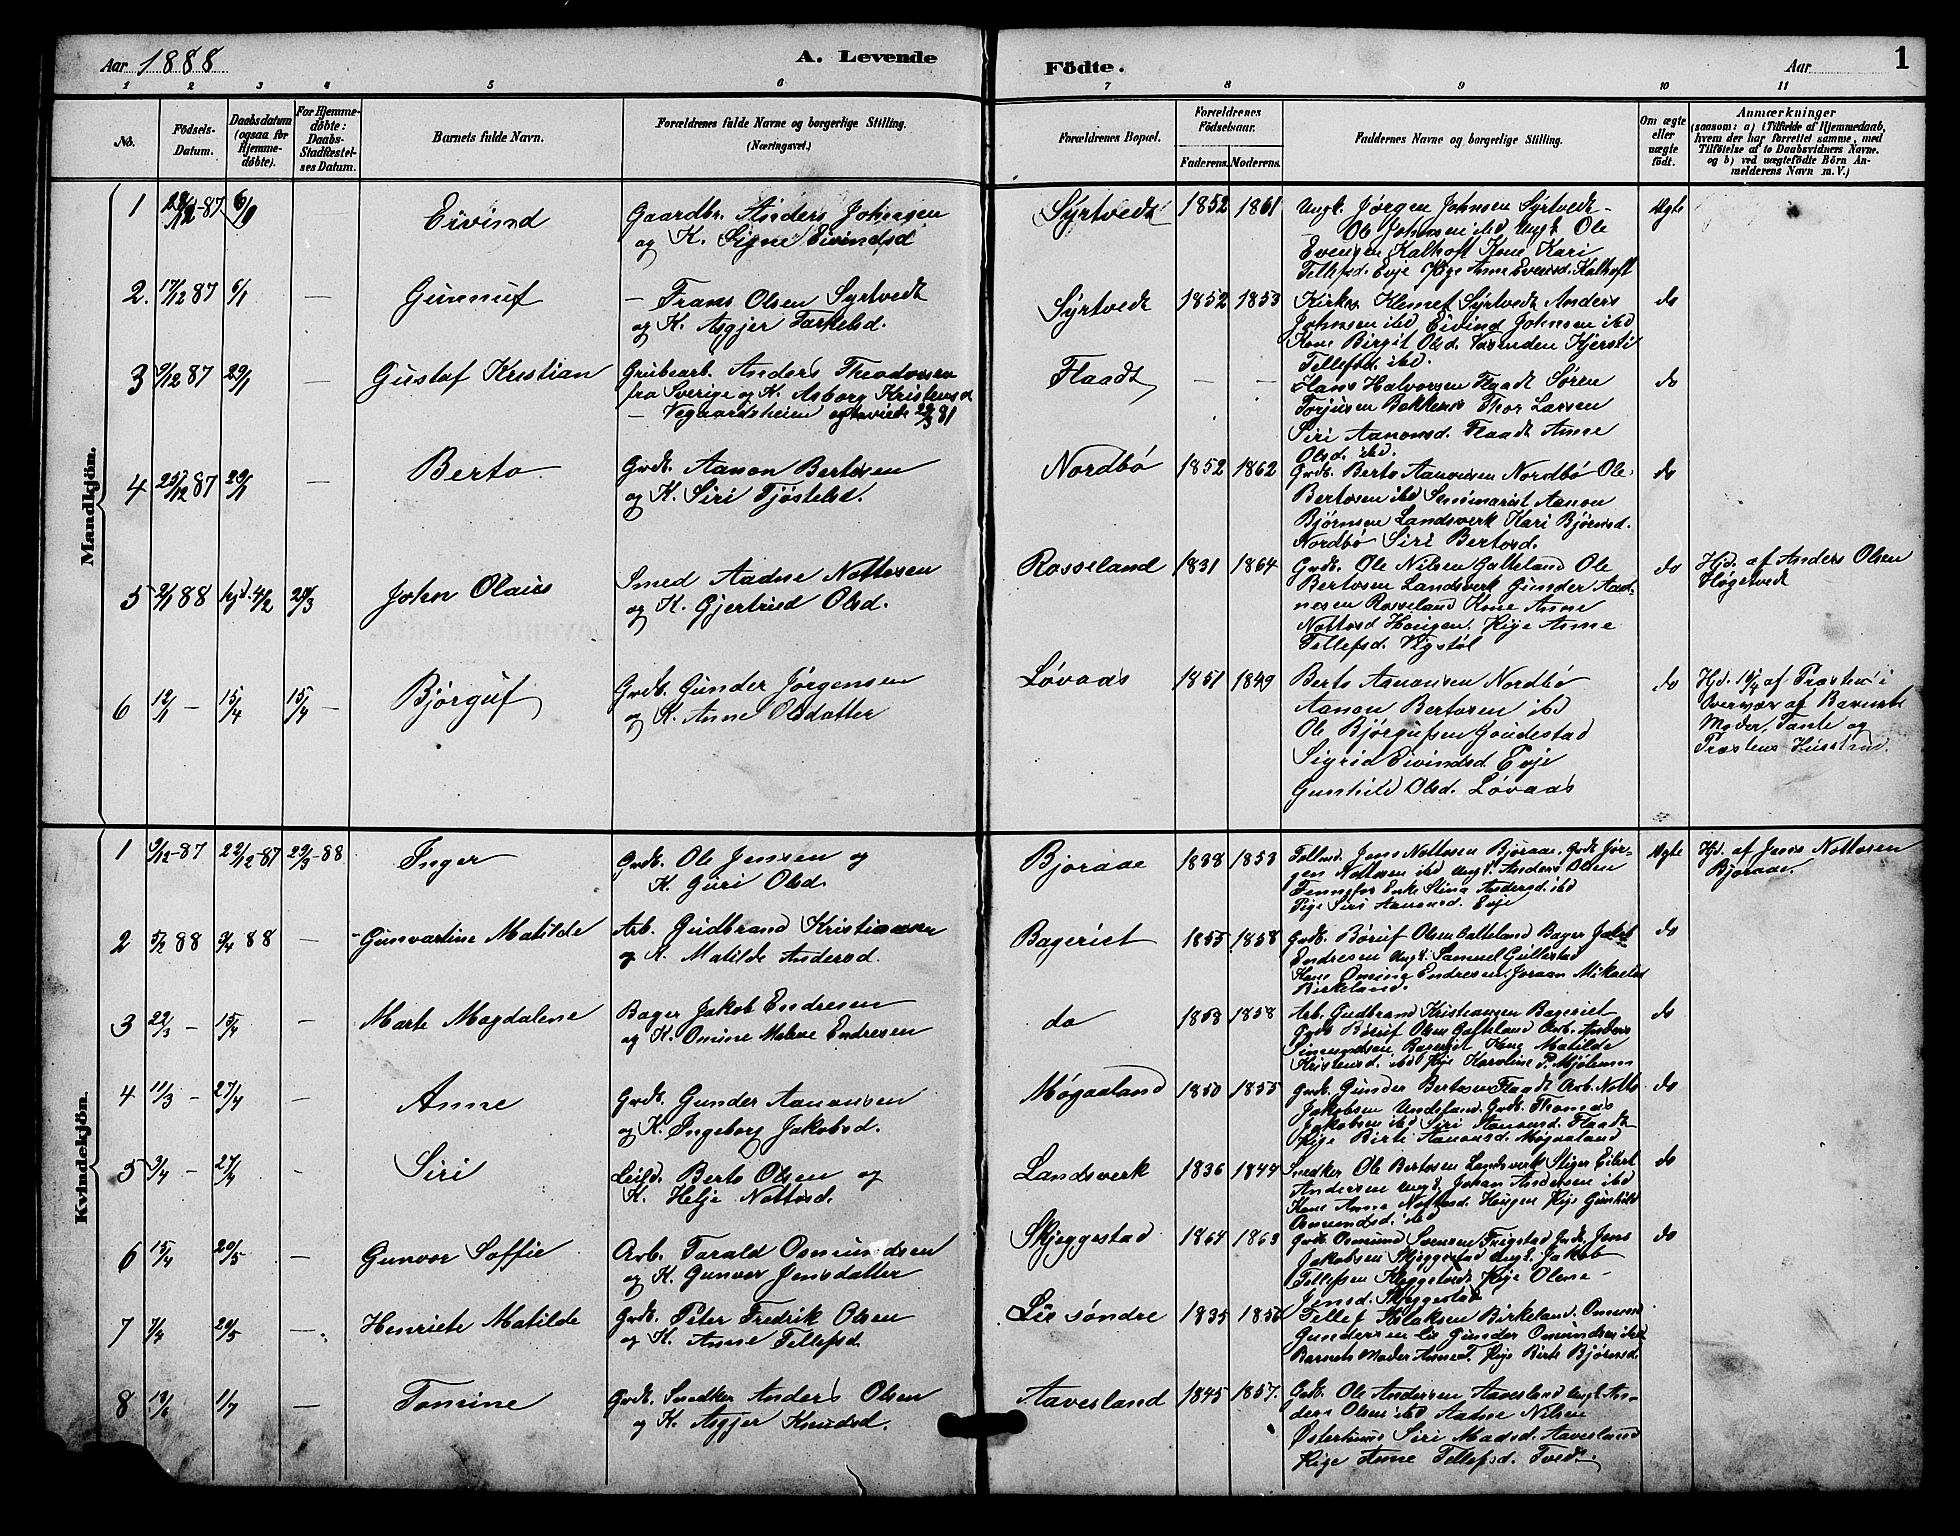 Aar 1888
A. Levende
Födte.
Aar
1
1 2 3 4 5 6 7 8 9 10 11
No.
Födsels-Datum.
Daabsdatum (ogsaa for Hjemme-döbte).
For Hjemme-döbte: Daabs-Stadfæstel-ses Datum.
Barnets fulde Navn.
Forældrenes fulde Navne og borgerlige Stilling.
(Næringsvei.)
Forældrenes Bopæl.
Forældrenes Födselsaar.
Faderens. Moderens.
Faddernes Navne og borgerlige Stilling.
Om ægte eller uægte födt.
Anmærkninger
(saasom: a) i Tilfælde af Hjemmedaab,
hvem der har forrettet samme, med
Tilföielse af to Daabsvidners Navne.
og b) ved uægtefödte Börn An-
melderens Navn m.V.)
Mandkjön.
1 6/1 Eivind Gaardbr. Anders Johnsen
og K. Signe Eivindsd
Syrtvedt 1852 1861 Ungk. Jørgen Johnsen Syrtvedt
Ole Johnsen ibd Ungk Ole
Evensen Kalhoft Kone Kari
Tellefsd. Evje Pige Anne Evensd. Kalhoft
Ægte
2. 17/12 87 6/1 — Gunnuf — Frans Olsen Syrtvedt
og K. Asgjer Tarkelsd.
Syrtvedt 1852 1853 Kirkes. Klemet Syrtvedt Anders
Johnsen ibd Eivind Johnsen ibd
Kone Birgit Olsd. Kjersti
Tellefsd. ibd.
do
3 9/12 87 29/1 — Gustaf Kristian Grubearb. Anders Theodorsen
fra Sverige og K. Asborg Kristensd
— Vegaardsheien
Flaadt — — Hans Halvorsen Flaadt Søren
Torjusen Bakken Thor Larsen
Siri Aanonsd. Flaadt Anne
Olsd. ibd.
do
4 25/12 87 29/1 — Berto Grdb. Aanon Bertosen
og K. Siri Tjøstelsd.
Nordbø 1852 1862 Grdb. Berto Aanonsen Nordbø Ole
Bertosen ibd Seminarist Aanon
Bjørnsen Landsverk Kari Bjørnsd.
Nordbø Siri Bertosd.
do
5 2/1 88 hjd. 4/2 John Olaus Smed Aadne Nottosen
og K. Gjertried Olsd.
Rosseland 1831 1864 Grdb. Ole Nilsen Galteland Ole
Bertosen Landsverk Gunder Aad-
nesen Rosseland Kone Anne
Nottosd Haugen. Pige Anne
Tellefsd. Vigstøl
do Hjd. af Anders Olsen
Høgetvedt
6 15/4 15/4 — Bjørguf Grdb. Gunder Jørgensen
og K. Anne Olsdatter
Løvaas 1851 1849 Berto Aanonsen Nordbø
Aanon Bertosen ibd
Ole Bjørgufsen
Sigrid Eivindsd Evje
Gunhild Olsd. Løvaas
do Hjd. af Præsten i
Overvær af Barnets
Moder, Tante og
Præstens
Kvindekjön.
1 9/12-87 22/12-87 29/3-88 Inger Grdb. Ole Jensen og
K. Guri Olsd.
Bjoraae 1838 1853 Jens Nottosen Bjoraae. Grdb Jør-
gen Nottosen ibd ungk. Anders Olsen
Enke Stina Andersd. ibd
Pige Siri Aanonsd. Evje
Ægte Hjd. af Jens Nottosen
Bjoraae.
2 5/2 88 3/4 88 — Gunvartine Matilde Arb. Gudbrand Kristiansen
og K. Matilde Andersd.
Bageriet 1855 1858 Grdb. Børuf Olsen Galteland Bager Jakob
Endresen ungk. Samuel Gullestad
Kone Omine Endresen. Joraan Mikaelsd
Birkeland.
do
3 22/3 — 15/4 — Marte Magdalene Bager Jakob Endresen
og K. Omine Malene Endresen
do 1858 1858 Arb. Gudbrand Kristiansen Bageriet
Grdb Børuf Olsen Galteland Arb. Anders
Simundsen Bageriet Kone Matilde
Kristensd. ibd Pige Karoline P. Mjølmen
do
4 11/3 — 27/4 — Anne Grdb. Gunder Aanonsen
og K. Ingeborg Jakobsd.
Møgaaland 1850 1855 Grdb. Gunder Bertosen Flaadt Arb. Notto
Jakobsen Grdb. Thomas
Jakobsen ibd Siri Aanonsd. Flaadt
Pige Birte Aanonsd. Møgaaland
do
5 3/4 — 27/4 — Siri Leild. Berto Olsen og
K. Helje Nottosd.
Landsverk 1836 1844 Snedker Ole Bertosen Landsverk Stiger Eilert
Andersen ungk. Johan Andersen ibd
Kone Anne Nottosd. Haugen Pige Gunhild
Osmundsd. ibd
do
6 15/4 20/5 — Gunvor Soffie Arb. Tarald Osmundsen
og K. Gunvor Jensdatter
Skjeggestad 1864 1863 Grdb Osmund Svensen Frigstad Grdb. Jens
Jakobsen Skjeggestad ungk. Jakob
Tellefsen Pige Olene
Jensd. Skjeggestad
do
7 7/4 20/5 — Henriete Matilde Grdb. Peter Fredrik Olsen
og K. Anne Tellefsd
Lie søndre 1835 1856 Tellef Aslaksen Birkeland. Osmund
Gundersen Lie Gunder Osmundsen ibd
Barnets Moder Anne T. Pige Birte Bjørnsd.
8 13/6 1/7 — Tomine Grdb. Snedker Anders Olsen
og K. Asgjer Knudsd.
Aavesland 1845 1857. Grdb. Ole Andersen Aavesland ungk. An-
ders Olsen ibd Aadne Nilsen
Siri Madsd. Aavesland
Pige Anne Tellefsd. Tvedt